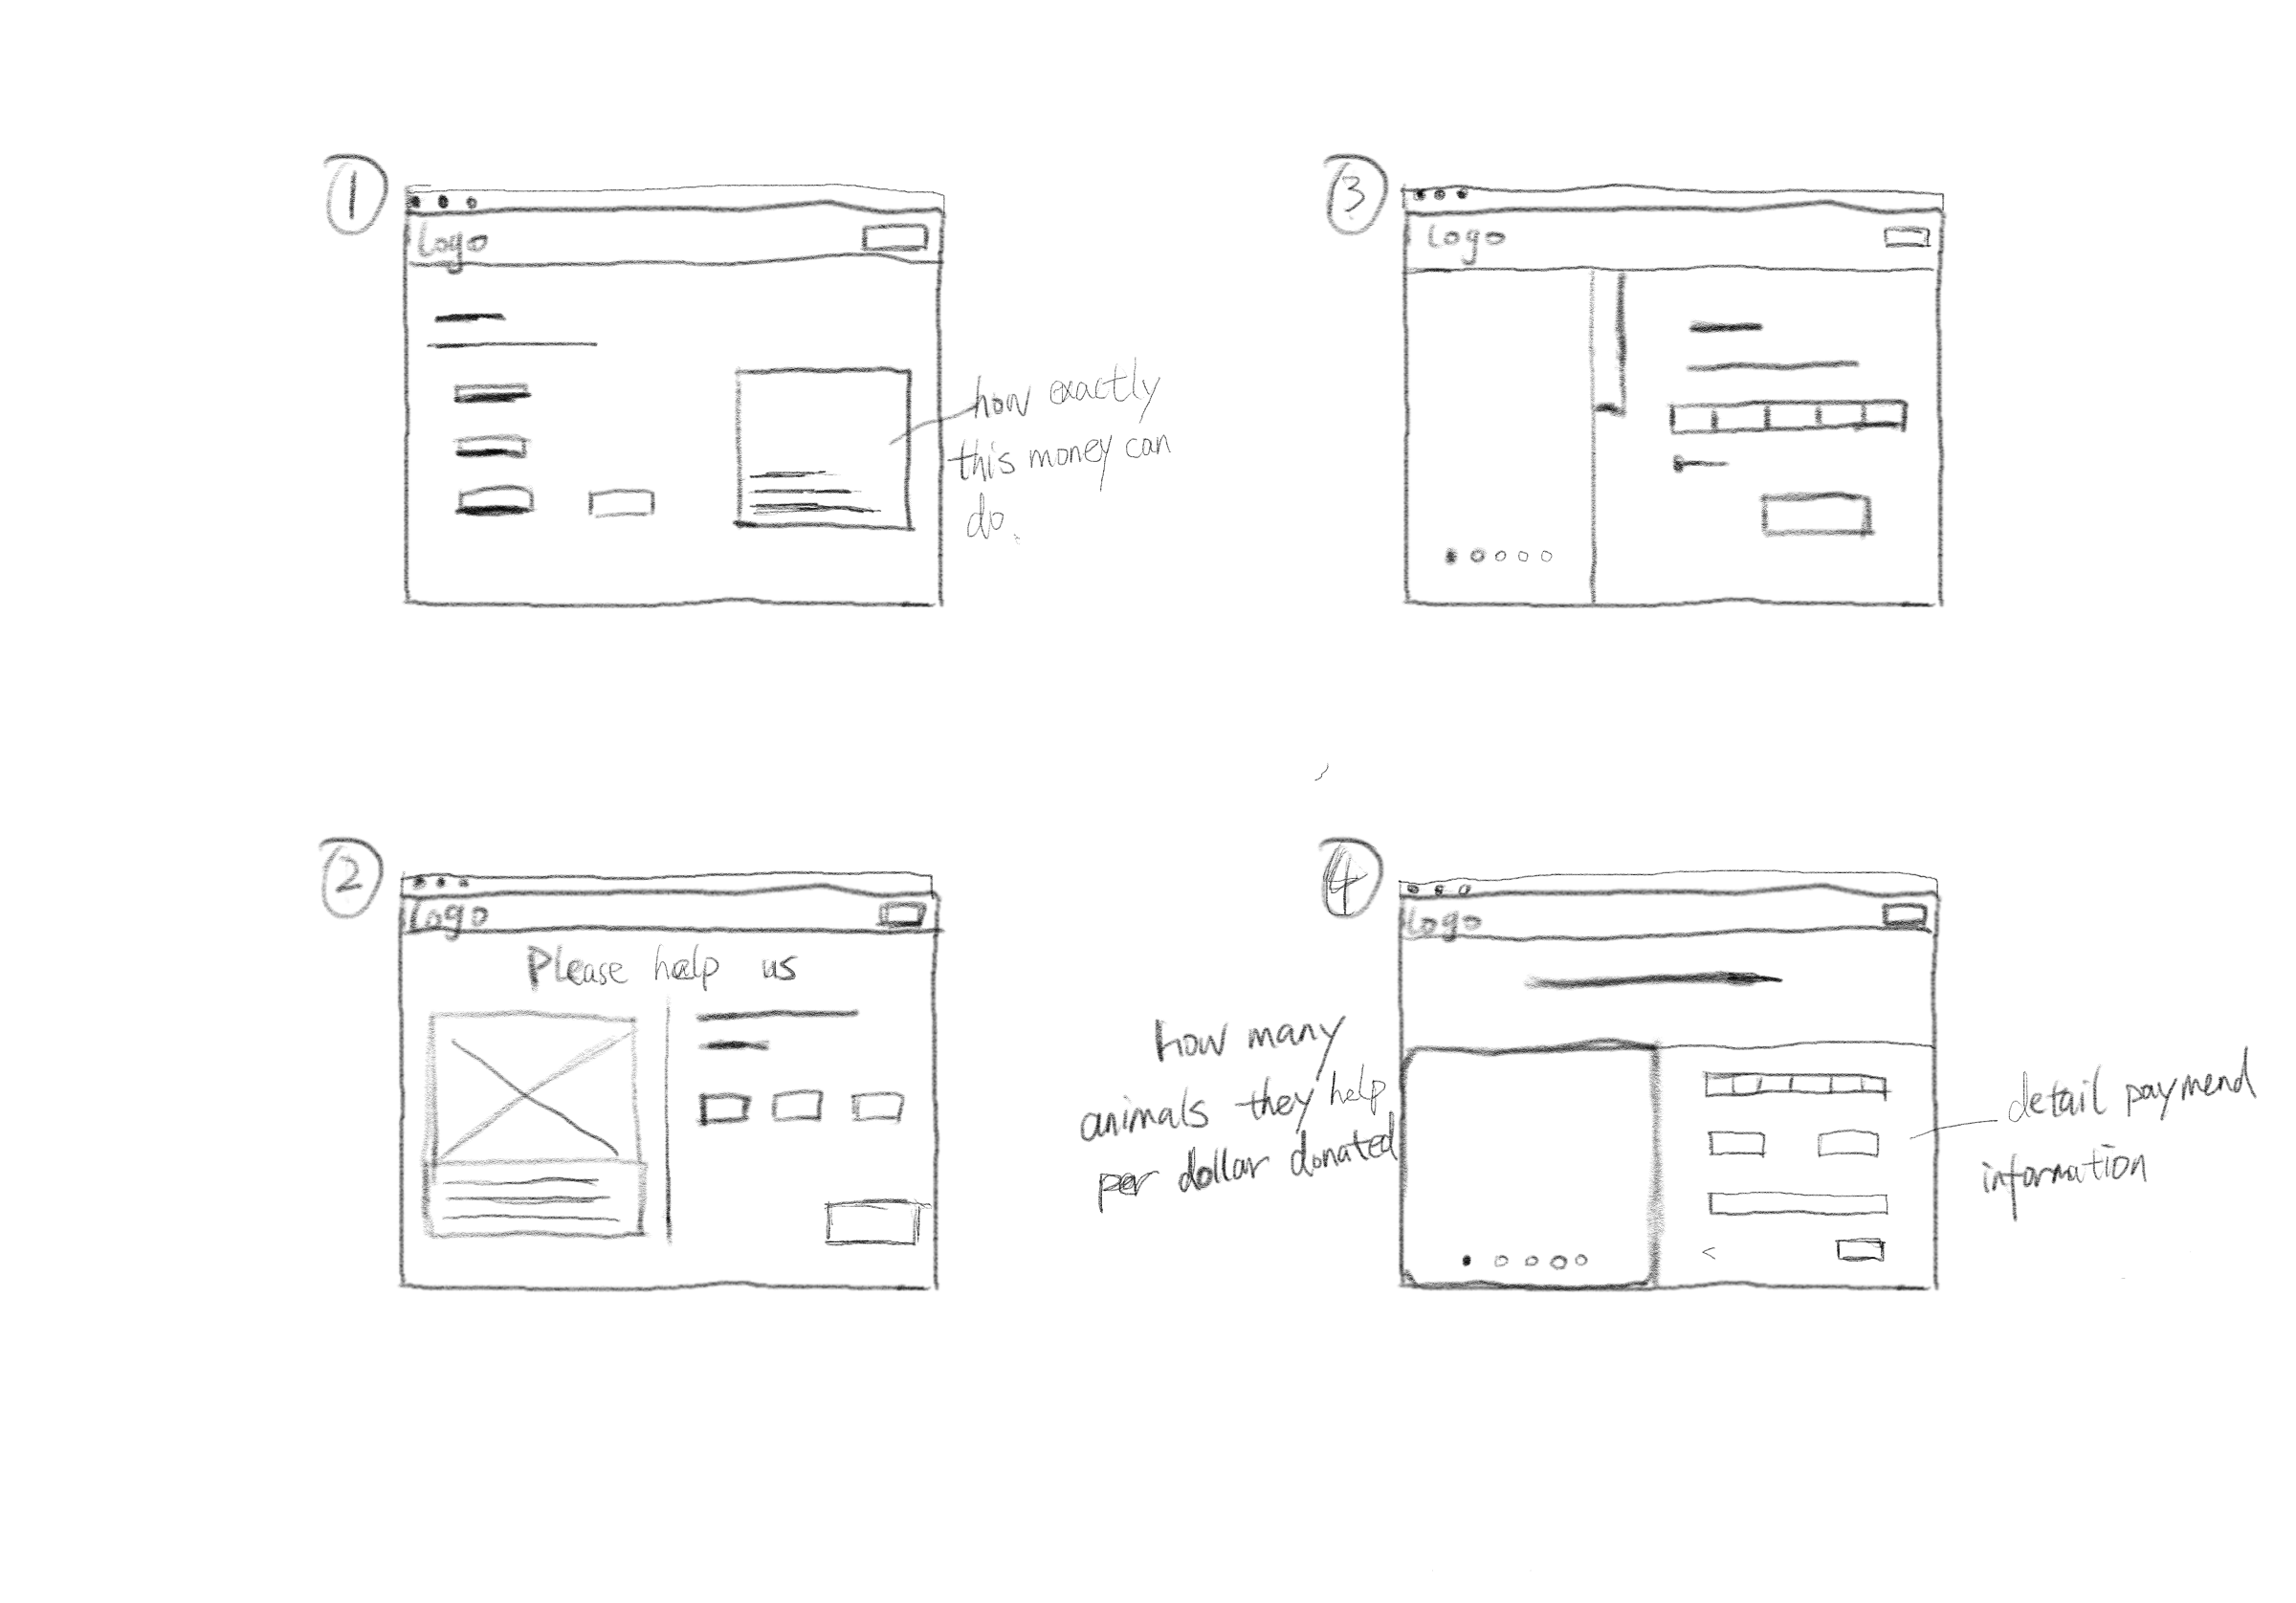 1
Logo
how exactly
this money can
do.
3
Logo
2
Logo
Please help us
4
Logo
how many
animals they help
per dollar donated
detail paymend
information